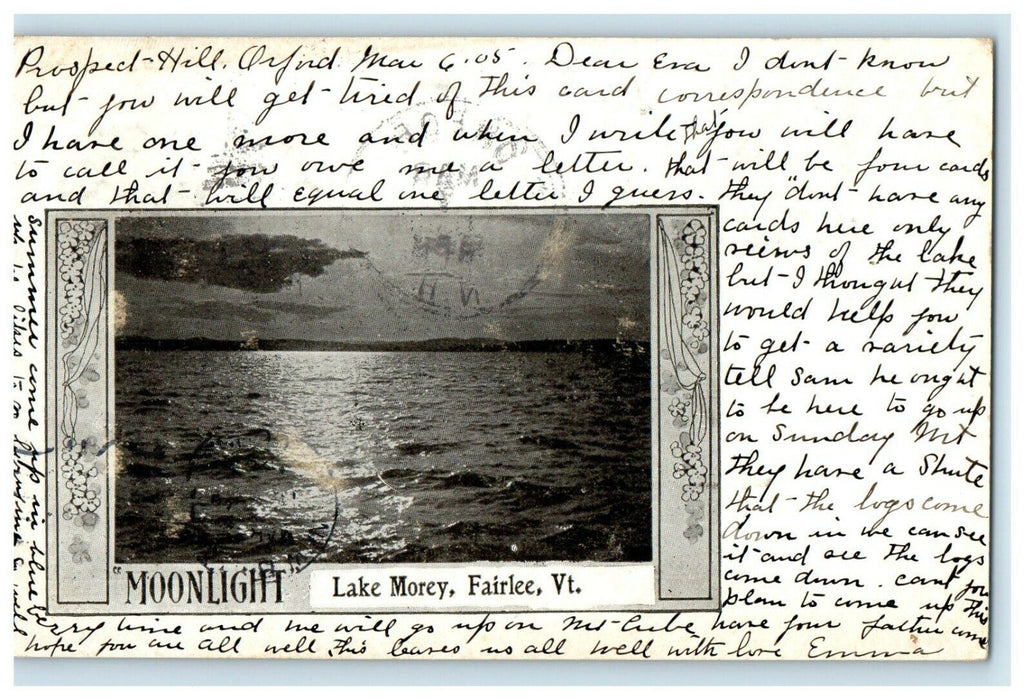 Prospect-Hill. Orford Mar 6.05. Dear Eva I dont-know
but-you will get-tired of This card correspondence but
I have one more and when I write that you will have
to call it-you owe me a letter. That-will be four cards
and that-will equal one letter I guess They "dont-have any
cards here only
veiws of the lake
but-I thought They
would help you
to get-a variety
tell Sam he ought
to be here to go up
on Sunday Mt
They have a Shute
that-the logs come
down in we can see
it-and see the logs
come down. cant you
plan to come up this
Summer come up in blue be
rry time and we will go up on Mt-Cube have your father come
hope you are all well, this leaves us all well with love Emma
"MOONLIGHT"
Lake Morey, Fairlee, Vt.